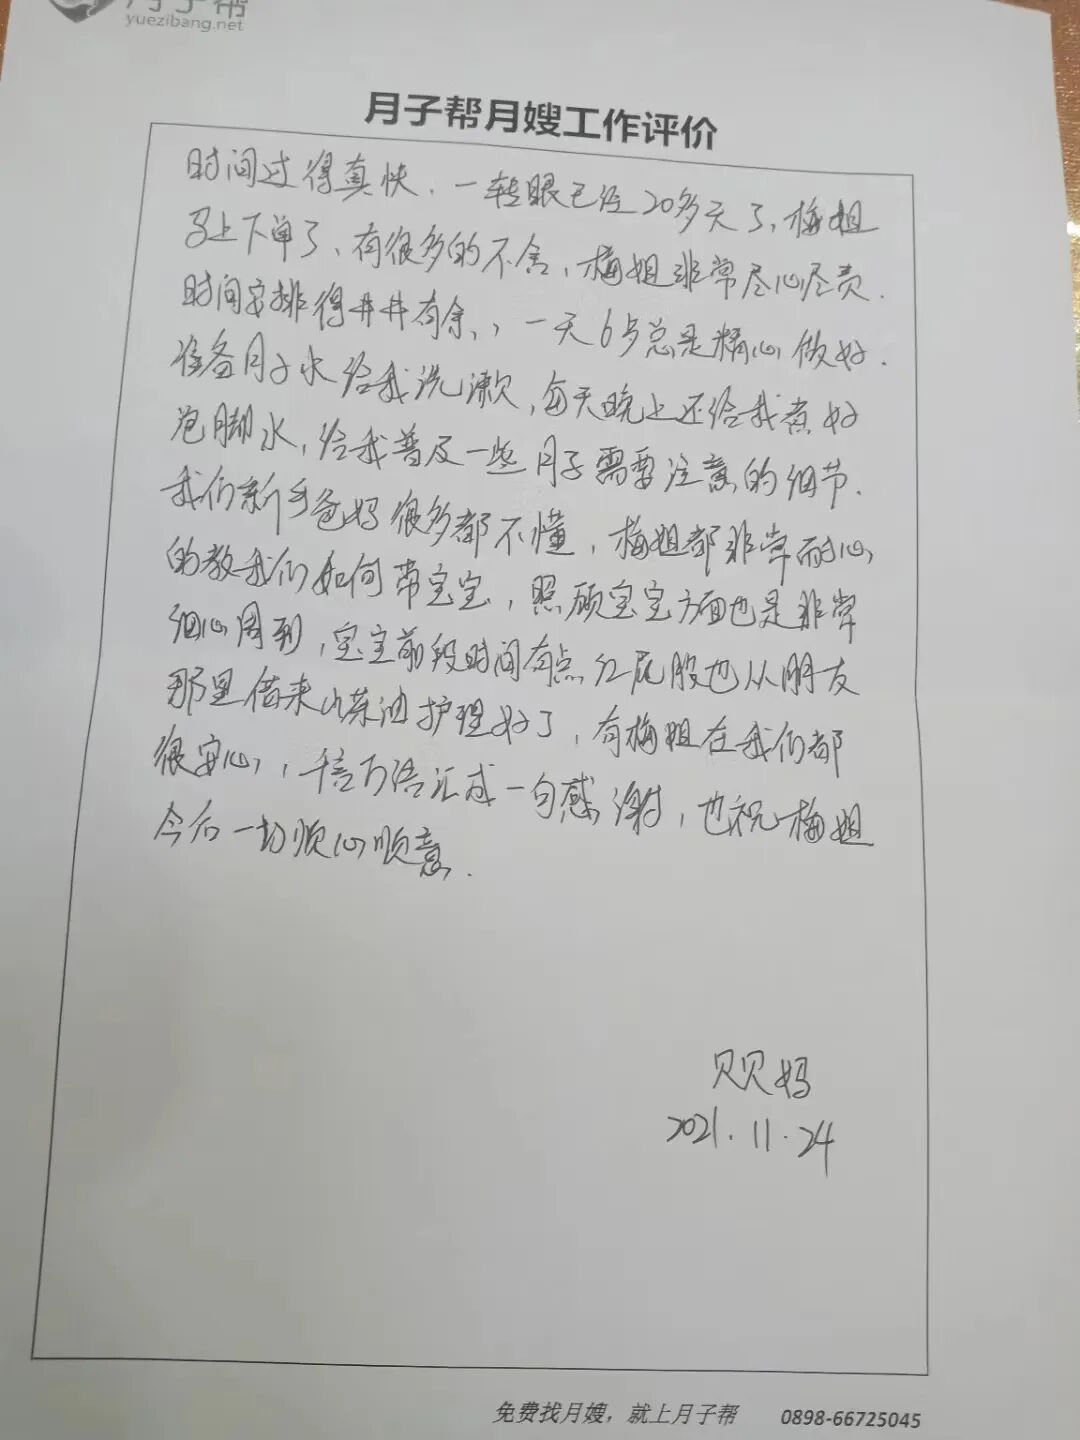 月子帮
yuezibang.net
月子帮月嫂工作评价
时间过得真快.一转眼已经20多天了,梅姐
马上下单了、有很多的不舍,梅姐非常尽心尽责.
时间安排得井井有余、,一天6点总是精心做好.
准备月子水给我洗漱,每天晚上还给我煮好
泡脚水,给我普及一些月子需要注意的细节.
我们新手爸妈很多都不懂,梅姐都非常耐心
的教我们如何带宝宝,照顾宝宝方面也是非常
细心周到,宝宝前段时间有点红屁股也从朋友
那里借来山茶油护理好了,有梅姐在我们都
很安心,千言万语汇成一句感谢,也祝梅姐
今后一切顺心顺意.
贝贝妈
2021.11.24
免费找月嫂,就上月子帮 0898-66725045